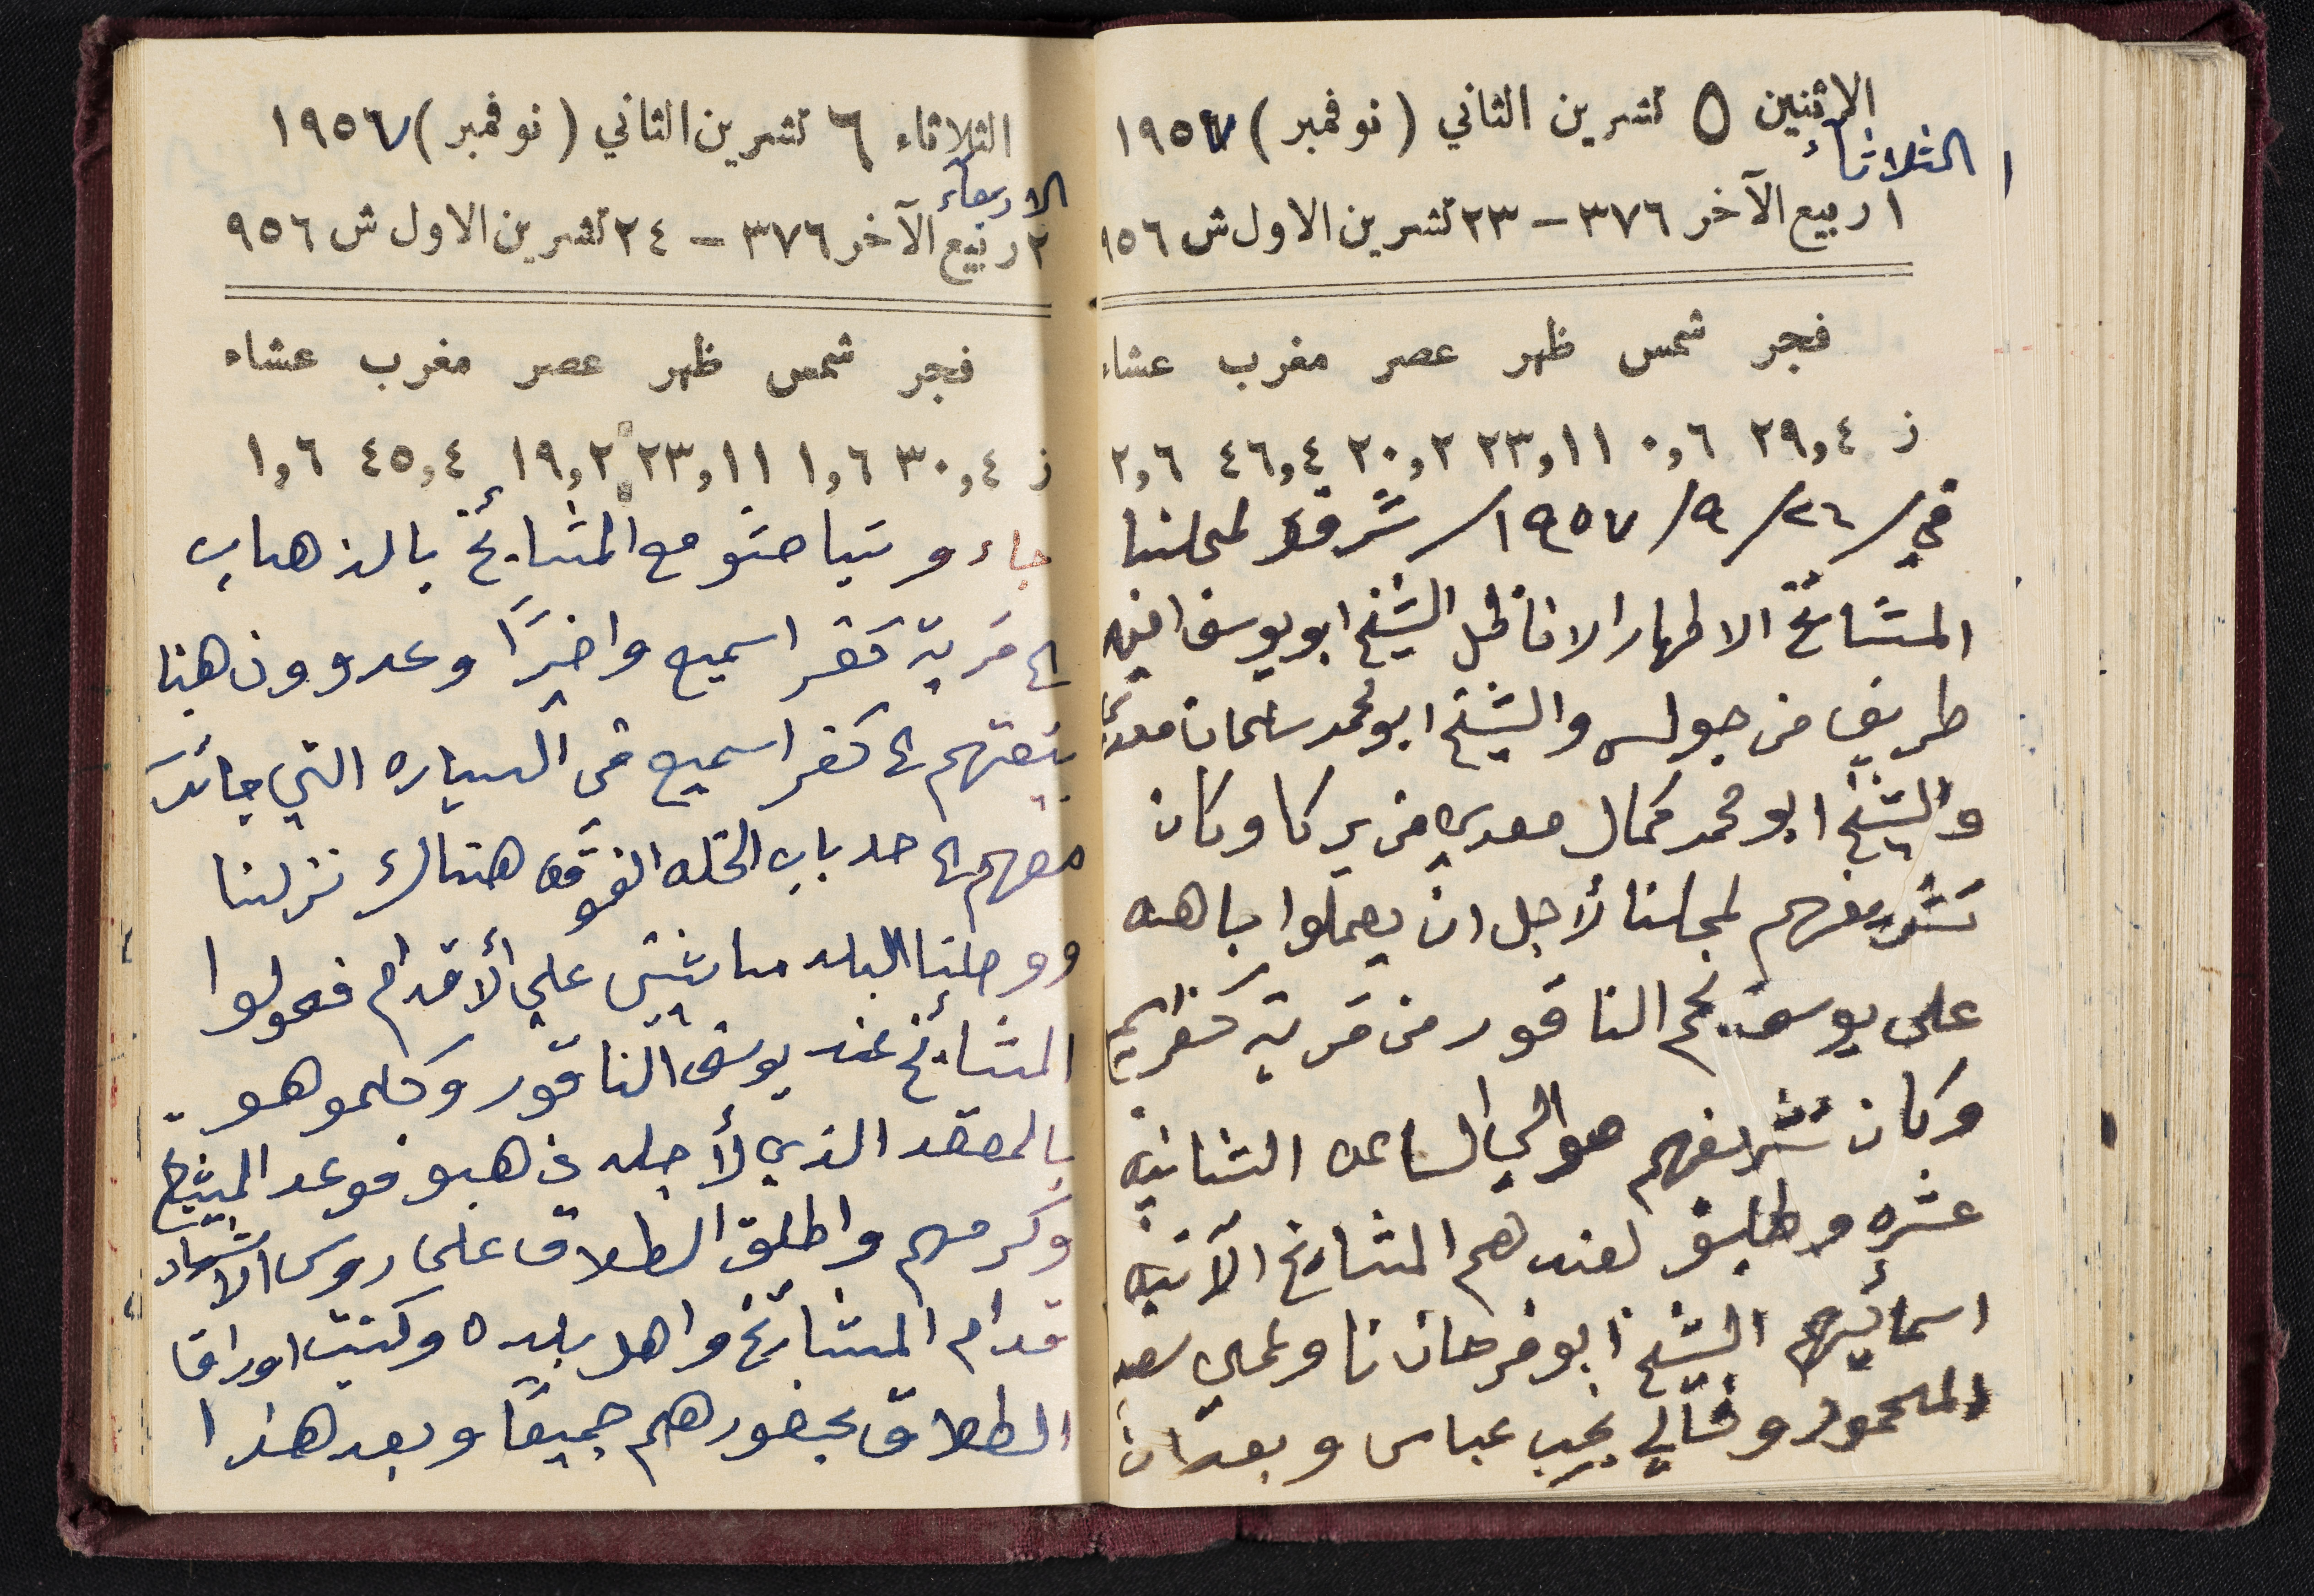 الاثنين ٥ تشرين الثاني (نوفمبر) ١٩٥٧
١ الثلاثاء
١ ربيع الآخر ٣٧٦ – ٢٣ تشرين الاول ش ٩٥٦
فجر شمس ظهر عصر مغرب عشاء
ز ٢٩,٤ ٠,٦ ٢٣,١١ ٢٠,٢ ٤٦,٤ ٢,٦
في/ ٢٦/ ٩/ ١٩٥٧/ شرفو لمحلنا
المشائخ الاطهار الافاظل الشيخ ابو يوسف امين
طريف من جولس والشيخ ابو محمد سلمان معدي
والشيخ ابو محمد كمال معدي من يركا وكان
تشريفهم لمحلنا لأجل ان يعملوا باهه
على يوسف نجم الناقور من قرية كفر سميع
وكان تشريفهم حوالي الساعه الثانيه
عشره وطلبو لعندهم المشايخ الآتيه
اسمائهم الشيخ ابو فرحان نا وعلي سعد
المحمود وخالي نجيب عباس وبعد ان
الثلاثاء ٦ تشرين الثاني (نوفمبر) ١٩٥٧
الاربعاء
٢ ربيع الآخر ٣٧٦ – ٢٤ تشرين الاول ش ٩٥٦
فجر شمس ظهر عصر مغرب عشاء
ز ٣٠,٤ ١,٦ ٢٣,١١ ١٩,٢ ٤٥,٤ ١,٦
جاءو وتباحثو مع المشائخ بالذهاب
الى قرية كفر اسميع واخيرًا وعدوو ذهبنا
بيعتهم الى كفر اسميع في السياره التي جائت
معهم الى حد باب الخله الفوقه هناك نزلنا
ووصلنا البلد ماشيين على الأقدام فحولوا
المشائخ عند يوسف الناقور وكلموهو
بالمقصد الذي لأجله ذهبو فوعد المشيخ
وكرمهم واطلق الطلاق على روس الاشهاد
قدام المشائخ واهل بلده وكتبت اوراق
الطلاق بحضورهم جميعًا وبعد هذا